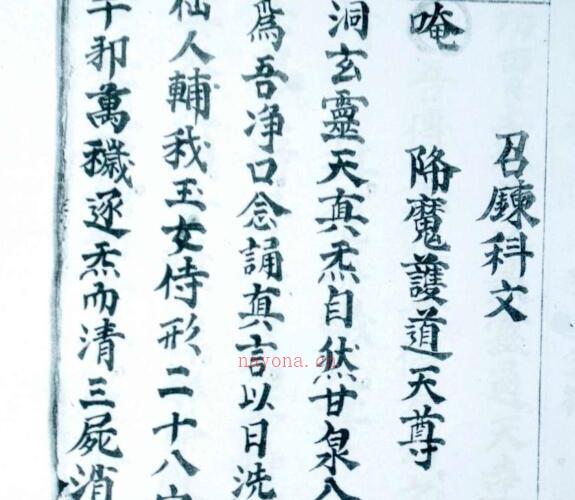 召鍊科文
唵 降魔護道天尊
洞玄靈天真炁自然甘泉入
爲吾淨口念誦真言以日洗
仙人輔我玉女侍形二十八
千邪萬穢逐炁而清三屍消
nayona.cn